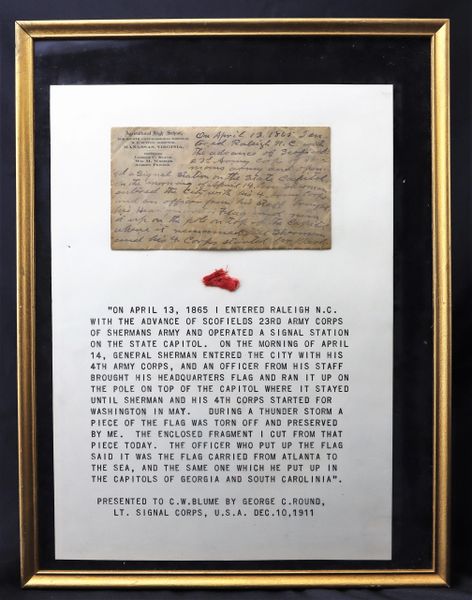 Agricultural High School,
MANASSAS, VIRGINIA.
On April 13, 1865 I en
tered Raleigh N.C. with
the advance of Scofields
23d Army Corps of Sher
mans army and opera
ted a Signal Station on the State Capitol
On the morning of April 14, Gen Sherman
entered the City with his 4 Army Corps
and an officer from his Staff brought
his Head Quarters Flag and ran
it up on the pole on top of the Capitol
where it remained till Sherman
and his 4 Corps started for Wash
"ON APRIL 13, 1865 I ENTERED RALEIGH N.C.
WITH THE ADVANCE OF SCOFIELDS 23RD ARMY CORPS
OF SHERMANS ARMY AND OPERATED A SIGNAL STATION
ON THE STATE CAPITOL. ON THE MORNING OF APRIL
14, GENERAL SHERMAN ENTERED THE CITY WITH HIS
4TH ARMY CORPS, AND AN OFFICER FROM HIS STAFF
BROUGHT HIS HEADQUARTERS FLAG AND RAN IT UP ON
THE POLE ON TOP OF THE CAPITOL WHERE IT STAYED
UNTIL SHERMAN AND HIS 4TH CORPS STARTED FOR
WASHINGTON IN MAY. DURING A THUNDER STORM A
PIECE OF THE FLAG WAS TORN OFF AND PRESERVED
BY ME. THE ENCLOSED FRAGMENT I CUT FROM THAT
PIECE TODAY. THE OFFICER WHO PUT UP THE FLAG
SAID IT WAS THE FLAG CARRIED FROM ATLANTA TO
THE SEA, AND THE SAME ONE WHICH HE PUT UP IN
THE CAPITOLS OF GEORGIA AND SOUTH CAROLINIA".
PRESENTED TO C.W.BLUME BY GEORGE C.ROUND,
LT. SIGNAL CORPS, U.S.A. DEC.10,1911